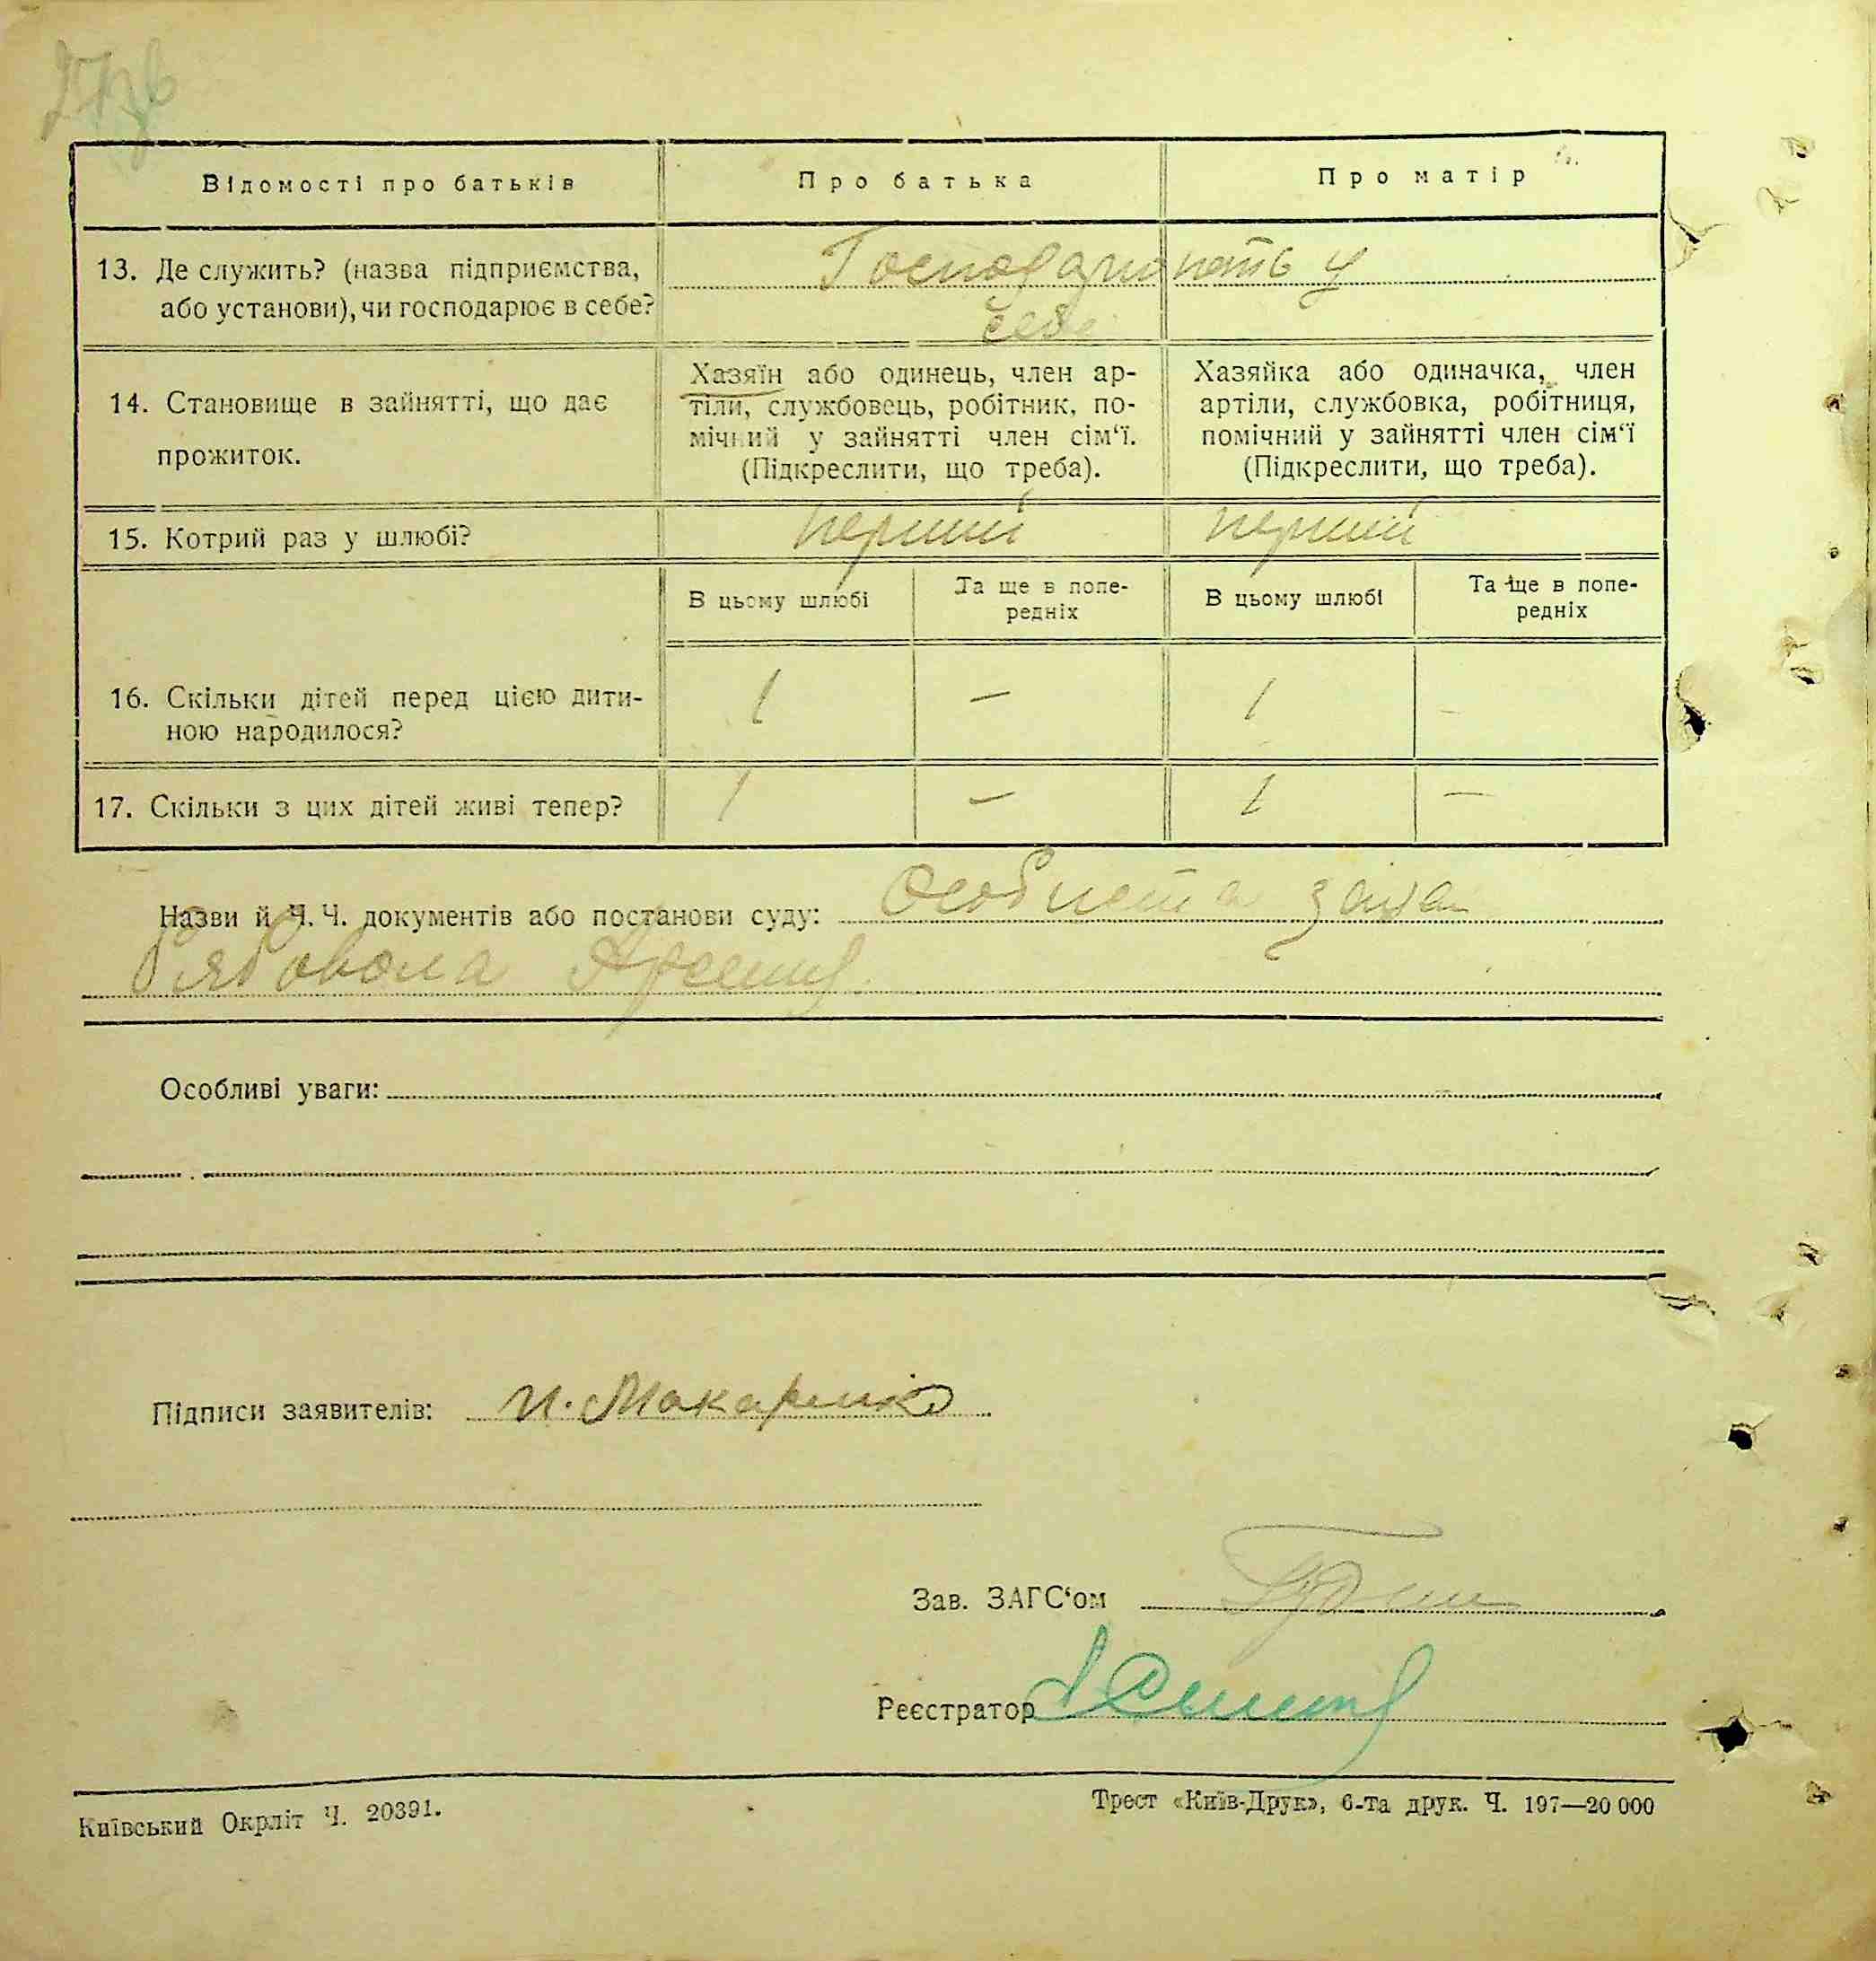 27зв
Відомості про батьків
Про батька
Про матір
13. Де служить? (назва підприємства,
або установи), чи господарює в себе?
Господарюють у
себе
14. Становище в зайнятті, що дає
прожиток.
Хазяїн або одинець, член ар-
тіли, службовець, робітник, по-
мічний у зайнятті член сім‘ї.
(Підкреслити, що треба).
Хазяйка або одиначка, член
артіли, службовка, робітниця,
помічний у зайнятті член сім‘ї
(Підкреслити, що треба).
15. Котрий раз у шлюбі?
перший
перший
В цьому шлюбі
Та ще в попе-
редніх
В цьому шлюбі
Та ще в попе-
редніх
16. Скільки дітей перед цією дити-
ною народилося?
1 — 1 -
17. Скільки з цих дітей живі тепер?
1 — 1 —
Назви й Ч. Ч. документів або постанови суду: Особиста заява
Рябовола
Особливі уваги:
Підписи заявителів: И. Макаренко
Зав. ЗАГС‘ом
Реєстратор
Київський Окрліт Ч. 20391.
Трест «Київ-Друк», 6-та друк. Ч. 197—20 000